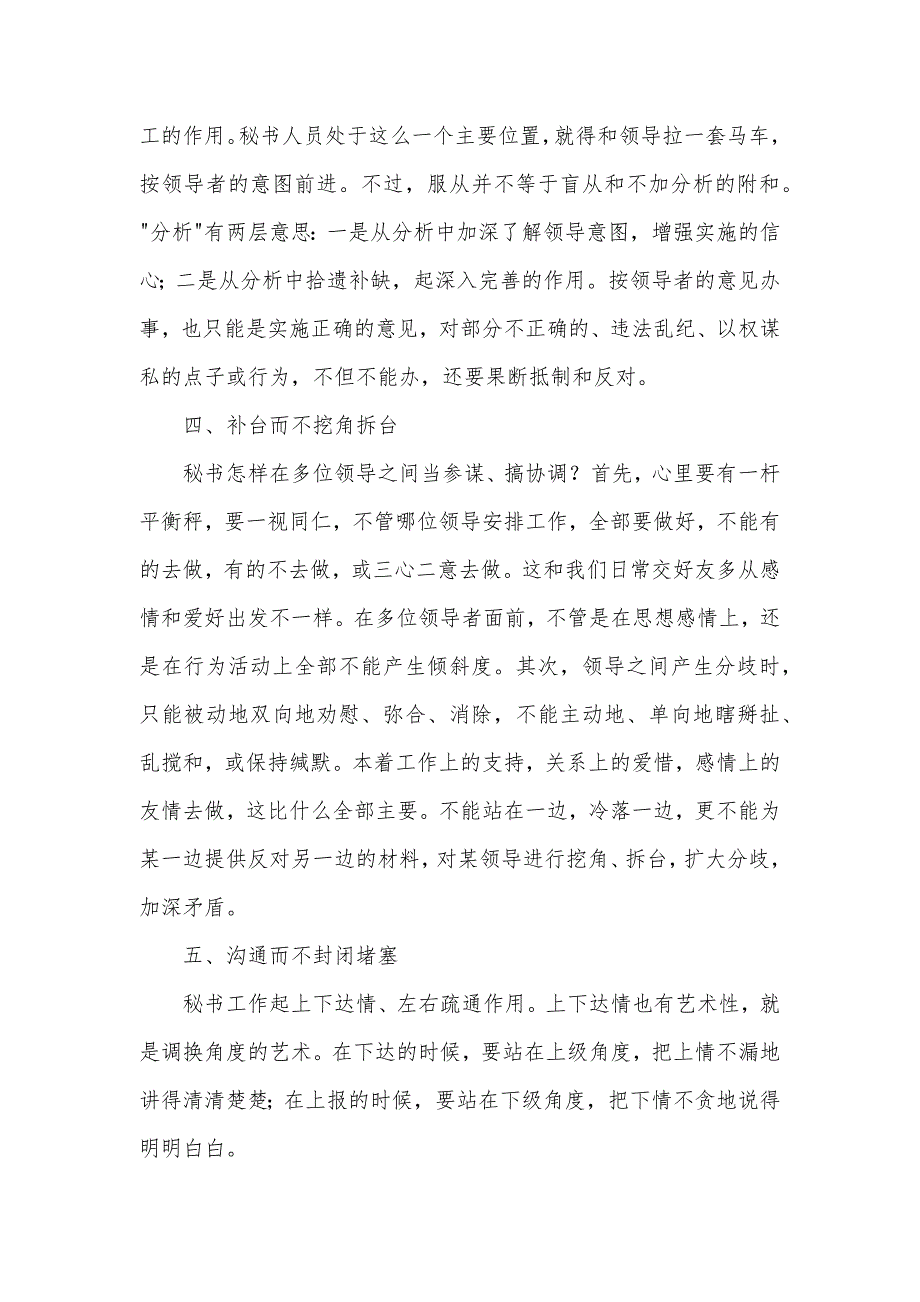 工的作用。秘书人员处于这么一个主要位置，就得和领导拉一套马车，
按领导者的意图前进。不过，服从并不等于盲从和不加分析的附和。
"分析"有两层意思：一是从分析中加深了解领导意图，增强实施的信
心；二是从分析中拾遗补缺，起深入完善的作用。按领导者的意见办
事，也只能是实施正确的意见，对部分不正确的、违法乱纪、以权谋
私的点子或行为，不但不能办，还要果断抵制和反对。
四、补台而不挖角拆台
秘书怎样在多位领导之间当参谋、搞协调？首先，心里要有一杆
平衡秤，要一视同仁，不管哪位领导安排工作，全部要做好，不能有
的去做，有的不去做，或三心二意去做。这和我们日常交好友多从感
情和爱好出发不一样。在多位领导者面前，不管是在思想感情上，还
是在行为活动上全部不能产生倾斜度。其次，领导之间产生分歧时，
只能被动地双向地劝慰、弥合、消除，不能主动地、单向地瞎掰扯、
乱搅和，或保持缄默。本着工作上的支持，关系上的爱惜，感情上的
友情去做，这比什么全部主要。不能站在一边，冷落一边，更不能为
某一边提供反对另一边的材料，对某领导进行挖角、拆台，扩大分歧，
加深矛盾。
五、沟通而不封闭堵塞
秘书工作起上下达情、左右疏通作用。上下达情也有艺术性，就
是调换角度的艺术。在下达的时候，要站在上级角度，把上情不漏地
讲得清清楚楚；在上报的时候，要站在下级角度，把下情不贪地说得
明明白白。